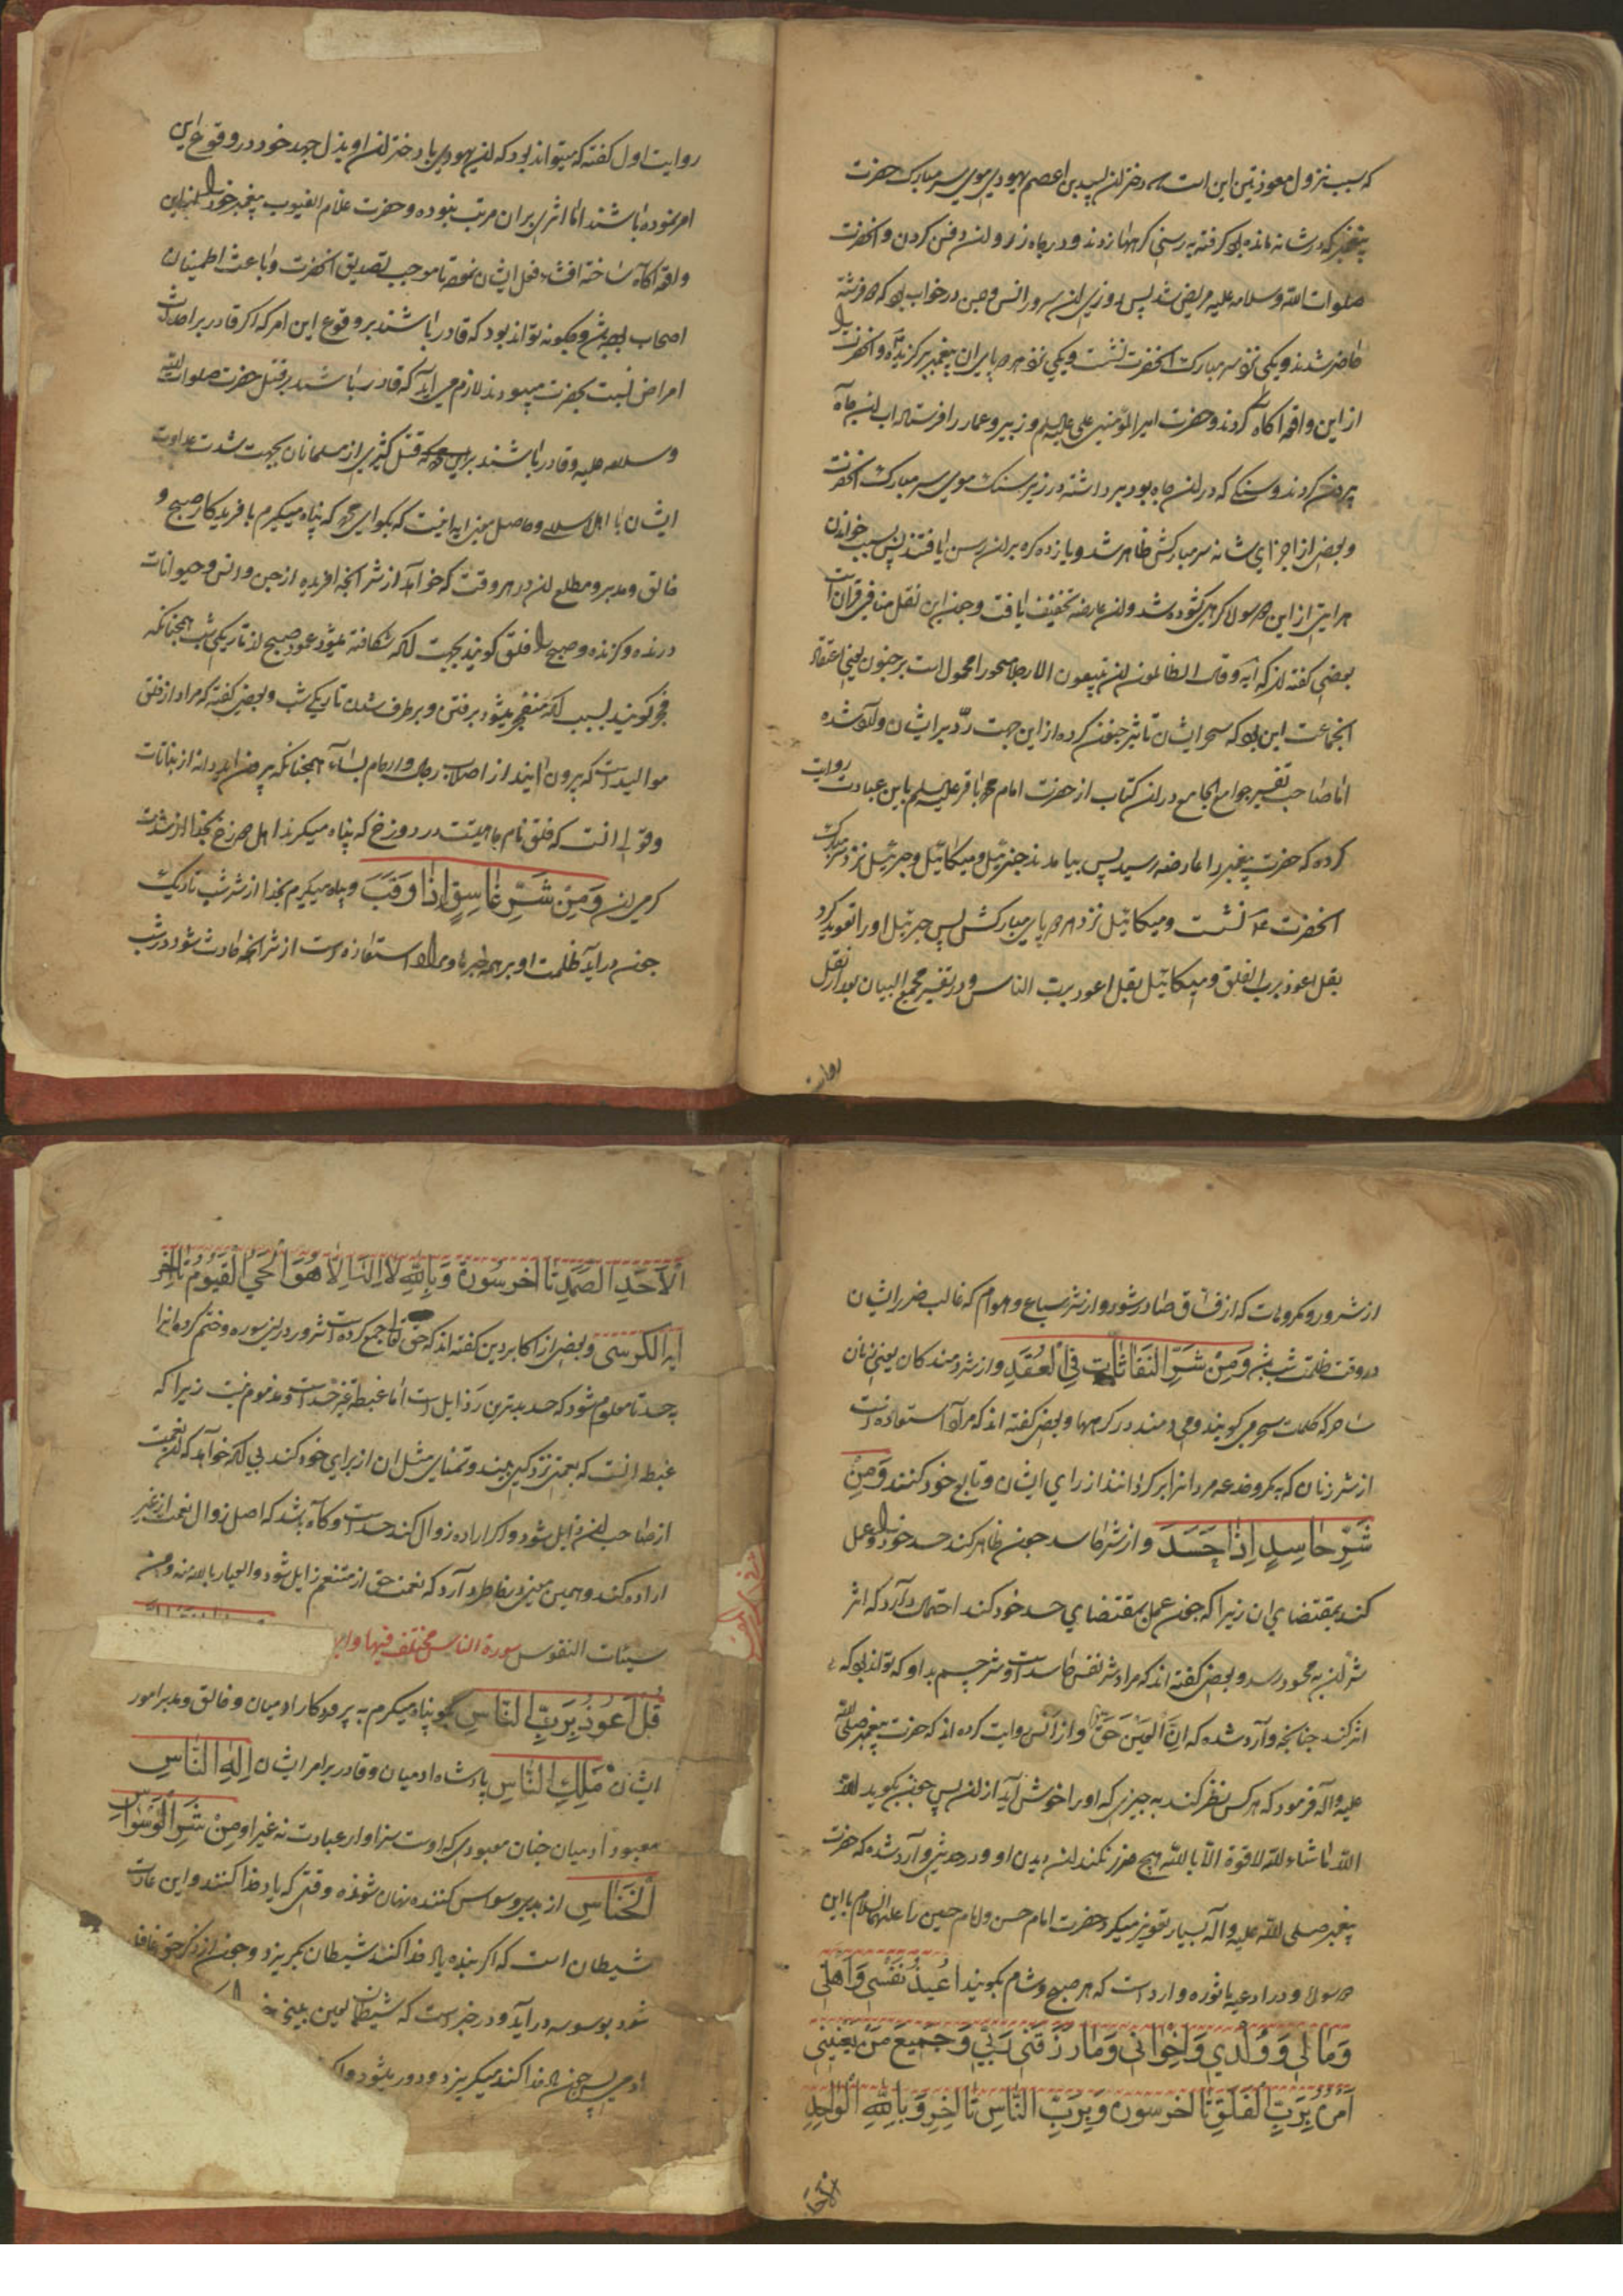 که سبب نزول معوذتین این است که دختران لبید بن اعصم یهودی موی سر مبارک حضرت
پیغمبر که در شانه مانده بود گرفته بر رسنی گرهها زدند و در چاه زروان دفن کردن و انحضرت
صلوات الله وسلامه علیه مریض شد پس روزی ان سرور انس و جن در خواب بود که دو فرشته
حاضر شدند و یکی نزد سر مبارک انحضرت نشست و یکی نزد هر دو پا و ان پیغمبر برگزیده و انحضرت را
از این واقعه اکاه کردند و حضرت امیر المؤمنین علی علیه السلم و زبیر و عمار را فرستاد اب ان چاه
بیرون کردند و سنگی که در ان چاه بود برداشته در زیر سنک موی سر مبارک انحضرت
و بعضی از اجزای شانه سر مبارکش ظاهر شد و یازده کره بران رسن یافتند پس بسبب خواندن
هر ایتی از این دو سوره کرهی کشوده شد و ان عارضه تخفیف یافت و چون این نقل منافی قران است
بعضی کفته اند که ایه وقال الظالمون ان تتبعون الا رجلا مسحورا محمول است بر جنون یعنی اعتقاد
انجماعت این بود که سحر ایشان تاثیر جنون کرده از این جهت رد بر ایشان وارد شده
اما صاحب تفسیر جوامع الجامع در ان کتاب از حضرت امام محمد باقر علیه السلم باین عبارت روایت
کرده که حضرت پیغمبر را عارضه رسید پس بیامدند جبرئیل و میکائیل و جبرئیل نزد سر مبارک
انحضرت نشست و میکائیل نزد هر دو پای مبارکش پس جبرئیل او را تعوید کرد
بقل اعوذ برب الفلق و میکائیل بقل اعوذ برب الناس و در تفسیر مجمع البیان بعد از نقل
روایت
روایت اول کفته که میتواند بود که ان یهودی یا دختران او بذل جهد خود در وقوع این
امر نموده باشند اما اثری بران مرتب نبوده و حضرت علام الغیوب پیغمبر خود را از این
واقعه اکاه ساخته افشاء فعل ایشان نموده تا موجب تصدیق انحضرت و باعث اطمینان
اصحاب بوده باشد و چکونه تواند بود که قادر باشند بر وقوع این امر که اکر قادر بر احداث
امراض نسبت بحضرت میبودند لازم می اید که قادر باشند بر قتل حضرت صلوات الله
وسلامه علیه و قادر باشند بر قتل کثیری از مسلمانان بجهت شدت عداوت
ایشان با اهل اسلام و حاصل معنی ایه اینست که بکو ای محمد که پناه میکیرم با فریدکار صبح و
خالق و مدبر و مطلع ان در هر وقت که خواهد از شر انچه افریده از جن و انس و حیوانات
درنده و کزنده و صبح را فلق کویند بجهت انکه شکافته میشود عمود صبح از تاریکی شب همچنانکه
فجر کویند بسبب انکه منفجر میشود برفتن و برطرف شدن تاریکی شب و بعضی کفته که مراد از فلق
موالید است که بیرون ایند از اصلاب رجال و ارحام نساء همچنانکه بیرون اید دانه از نباتات
وقولی انست که فلق نام چاهیست در دوزخ که پناه میکیرند اهل دوزخ بخدا از شدت
کرمی ان وَمِنْ شَرِّ غَاسِقٍ اِذَا وَقَبَ و پناه میکیرم بخدا از شر شب تاریک
چون دراید ظلمت او بر همه چیزها و مراد استعاذه است از شر انچه حادث شود در شب
از شرور و مکروهات که از فساق صادر شود و از شر سباع و هوام که غالب ضرر ایشان
در وقت ظلمت شب است وَمِنْ شَرِّ النَّفَّاثَاتِ فِي الْعُقَدِ و از شر دمندکان یعنی زنان
ساحره که کلمات سحر میکویند و می دمند در کرهها و بعضی کفته اند که مراد استعاذه است
از شر زنان که بمکر و خدعه مردانرا بر کردانند از رای ایشان و تابع خود کنند وَمِنْ
شَرِّ حَاسِدٍ اِذَا حَسَدَ و از شر حاسد چون ظاهر کند حسد خود را و عمل
کند بمقتضای ان زیرا که چون عمل بمقتضای حسد خود کند احتمال دارد که اثر
شر ان به محسود رسد و بعضی کفته اند که مراد شر نفس حاسد است و شر چشم بد او که تواند بود که
اثر کند چنانچه وارد شده که اِنَّ الْعَيْنَ حَقٌّ و از انس روایت کرده اند که حضرت پیغمبر صلی الله
علیه واله فرمود که هر کس نظر کند به چیزی که او را خوش اید از ان پس چون بکوید
الله ماشاء الله لا قوة الا بالله هیچ ضرر نکند ان بدن او و در حدیثی وارد شده که حضرت
پیغمبر صلی الله علیه واله بسیار تعویذ میکرد حضرت امام حسن و امام حسین را علیهما السلام باین
دو سوره و در ادعیه ماثوره وارد است که هر صبح و شام بکویند اُعِيذُ نَفْسِي وَاَهْلِي
وَمَالِي وَوُلْدِي وَاِخْوَانِي وَمَا رَزَقَنِي رَبِّي وَجَمِيعَ مَنْ يَعْنِينِي
اَمْرُهُ بِرَبِّ الْفَلَقِ تا اخر سوره وَبِرَبِّ النَّاسِ تا اخر وَبِاللهِ الْوَاحِدِ
الاحد
اَلْاَحَدِ الصَّمَدِ تا اخر سورة وَبِاللهِ لَا اِلهَ اِلَّا هُوَ الْحَيُّ الْقَيُّومُ تا اخر
ایة الکرسی و بعضی از اکابر دین کفته اند که حق تعالی جمع کرده است شرور در این سوره و ختم کرده انرا
بحسد تا معلوم شود که حسد بدترین رذایل است اما غبطه غیر حسد است و مذموم نیست زیرا که
غبطه انست که نعمتی نزد کسی بیند و تمنای مثل ان از برای خود کند بی انکه خواهد که ان نعمت
از صاحب ان زایل شود و اکر اراده زوال کند حسد است و کاه باشد که اصل زوال نعمت از غیر
اراده کند و همین معنی در خاطر دارد که نعمت حق از متنعم زایل شود والعیاذ بالله منه ومن
سیئات النفوس سورة الناس مختلف فیها
قُلْ اَعُوذُ بِرَبِّ النَّاسِ بکو پناه میکیرم به پروردکار ادمیان و خالق و مدبر امور
ایشان مَلِكِ النَّاسِ پادشاه ادمیان و قادر بر امر ایشان اِلهِ النَّاسِ
معبود ادمیان چنان معبودی که اوست سزاوار عبادت نه غیر او مِنْ شَرِّ الْوَسْوَاسِ
الْخَنَّاسِ از بدی وسواس کننده نهان شونده وقتی که یاد خدا کنند و این عادت
شیطان است که اکر بنده یاد خدا کند شیطان بکریزد و چون از ذکر حق غافل
شود بوسوسه دراید و در خبر است که شیطان لعین بینی
ادمی پس چون یاد خدا کند میکریزد و دور میشود و